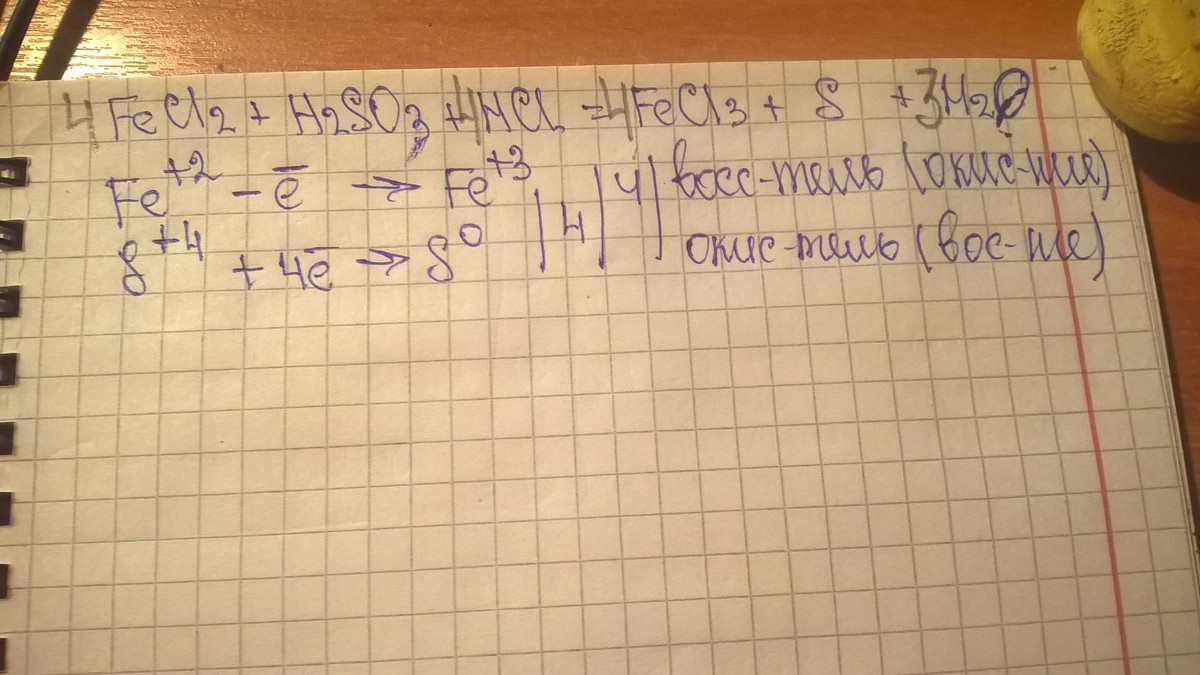 4FeCl2 + H2SO3 + 4HCl = 4FeCl3 + S + 3H2O
Fe+2 - e → Fe+3 | | 4 | восс-тель (окис-ние)
S+4 + 4e → S0 | 4 | | окис-тель (вос-ние)